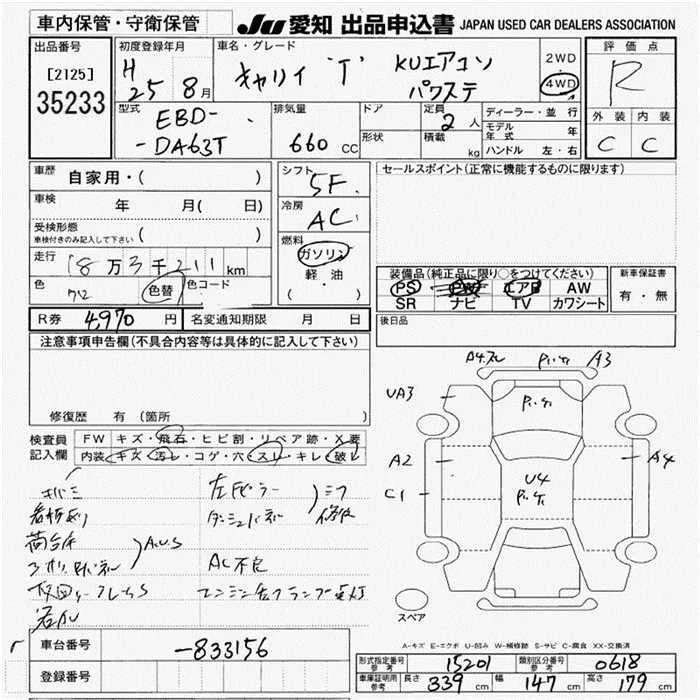 車内保管・守衛保管
JU 愛知 出品申込書 JAPAN USED CAR DEALERS ASSOCIATION
出品番号
[2125]
35233
初度登録年月
H 25 年 8 月
車名・グレード
キャリイ 'T' KUエアコン
パワステ
2WD
4WD
評価点
R
外装 内装
C C
型式
EBD-
-DA63T
排気量
660 CC
ドア
形状
定員
2 人
積載
kg
ディーラー・並行
モデル年式 年
ハンドル 左・右
車歴
自家用・( )
車検
年 月( 日)
受検形態
車検付きのみ記入して下さい ( )
走行
18 万 3 千 211 km
色
色替
色コード
シフト
5F
冷房
AC
燃料
ガソリン
軽・油
( ・ )
セールスポイント(正常に機能するものに限ります)
装備品(純正品に限り○をつけてください)
PS PW エアB AW
SR ナビ TV カワシート
新車保証書
有・無
R券 4970 円
名変通知期限 月 日
後日品
注意事項申告欄(不具合内容等は具体的に記入して下さい)
修復歴 有(箇所
検査員
記入欄
FW キズ・飛石・ヒビ割・リペア跡・X要
内装 キズ・汚レ・コゲ・穴・スレ・キレ・破レ
サビ
荷台
A.U.S
左Fピラー
ミフ
修復
AC不良
エンジンチェックランプ点灯
A3
UA3
A2
C1
A4
U4
スペア
A-キズ E-エクボ U-凹み W-補修跡 S-サビ C-腐食 XX-交換済
車台番号
-833156
登録番号
形式指定番号 参考 15201
類別区分番号 参考 0618
車庫証明用 参考 長さ 339 cm 幅 147 cm 高さ 179 cm